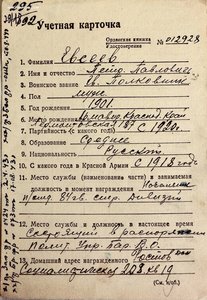 Учетная карточка
Орденская книжка
Удостоверение № 012928
1. Фамилия Евсеев
2. Имя и отчество Павлович
3. Воинское звание Гв. Полковник
4. Пол муж.
5. Год рождения 1901.
6. Место рождения Армавир, Красн. Края
7. Партийность (с какого года) с 1920г.
8. Образование Среднее
9. Национальность Русский
10. С какого года в Красной Армии С 1918 года
11. Место службы (наименование части) и занимаемая
должность в момент награждения
84 гв. стр. дивизии
12. Место службы и должность в настоящее время
Состоящий в распоряжении
Полит. Упр. Бар. В.О.
13. Домашний адрес награжденного
Социалистическая 208 кв 19
(См. н/об.)